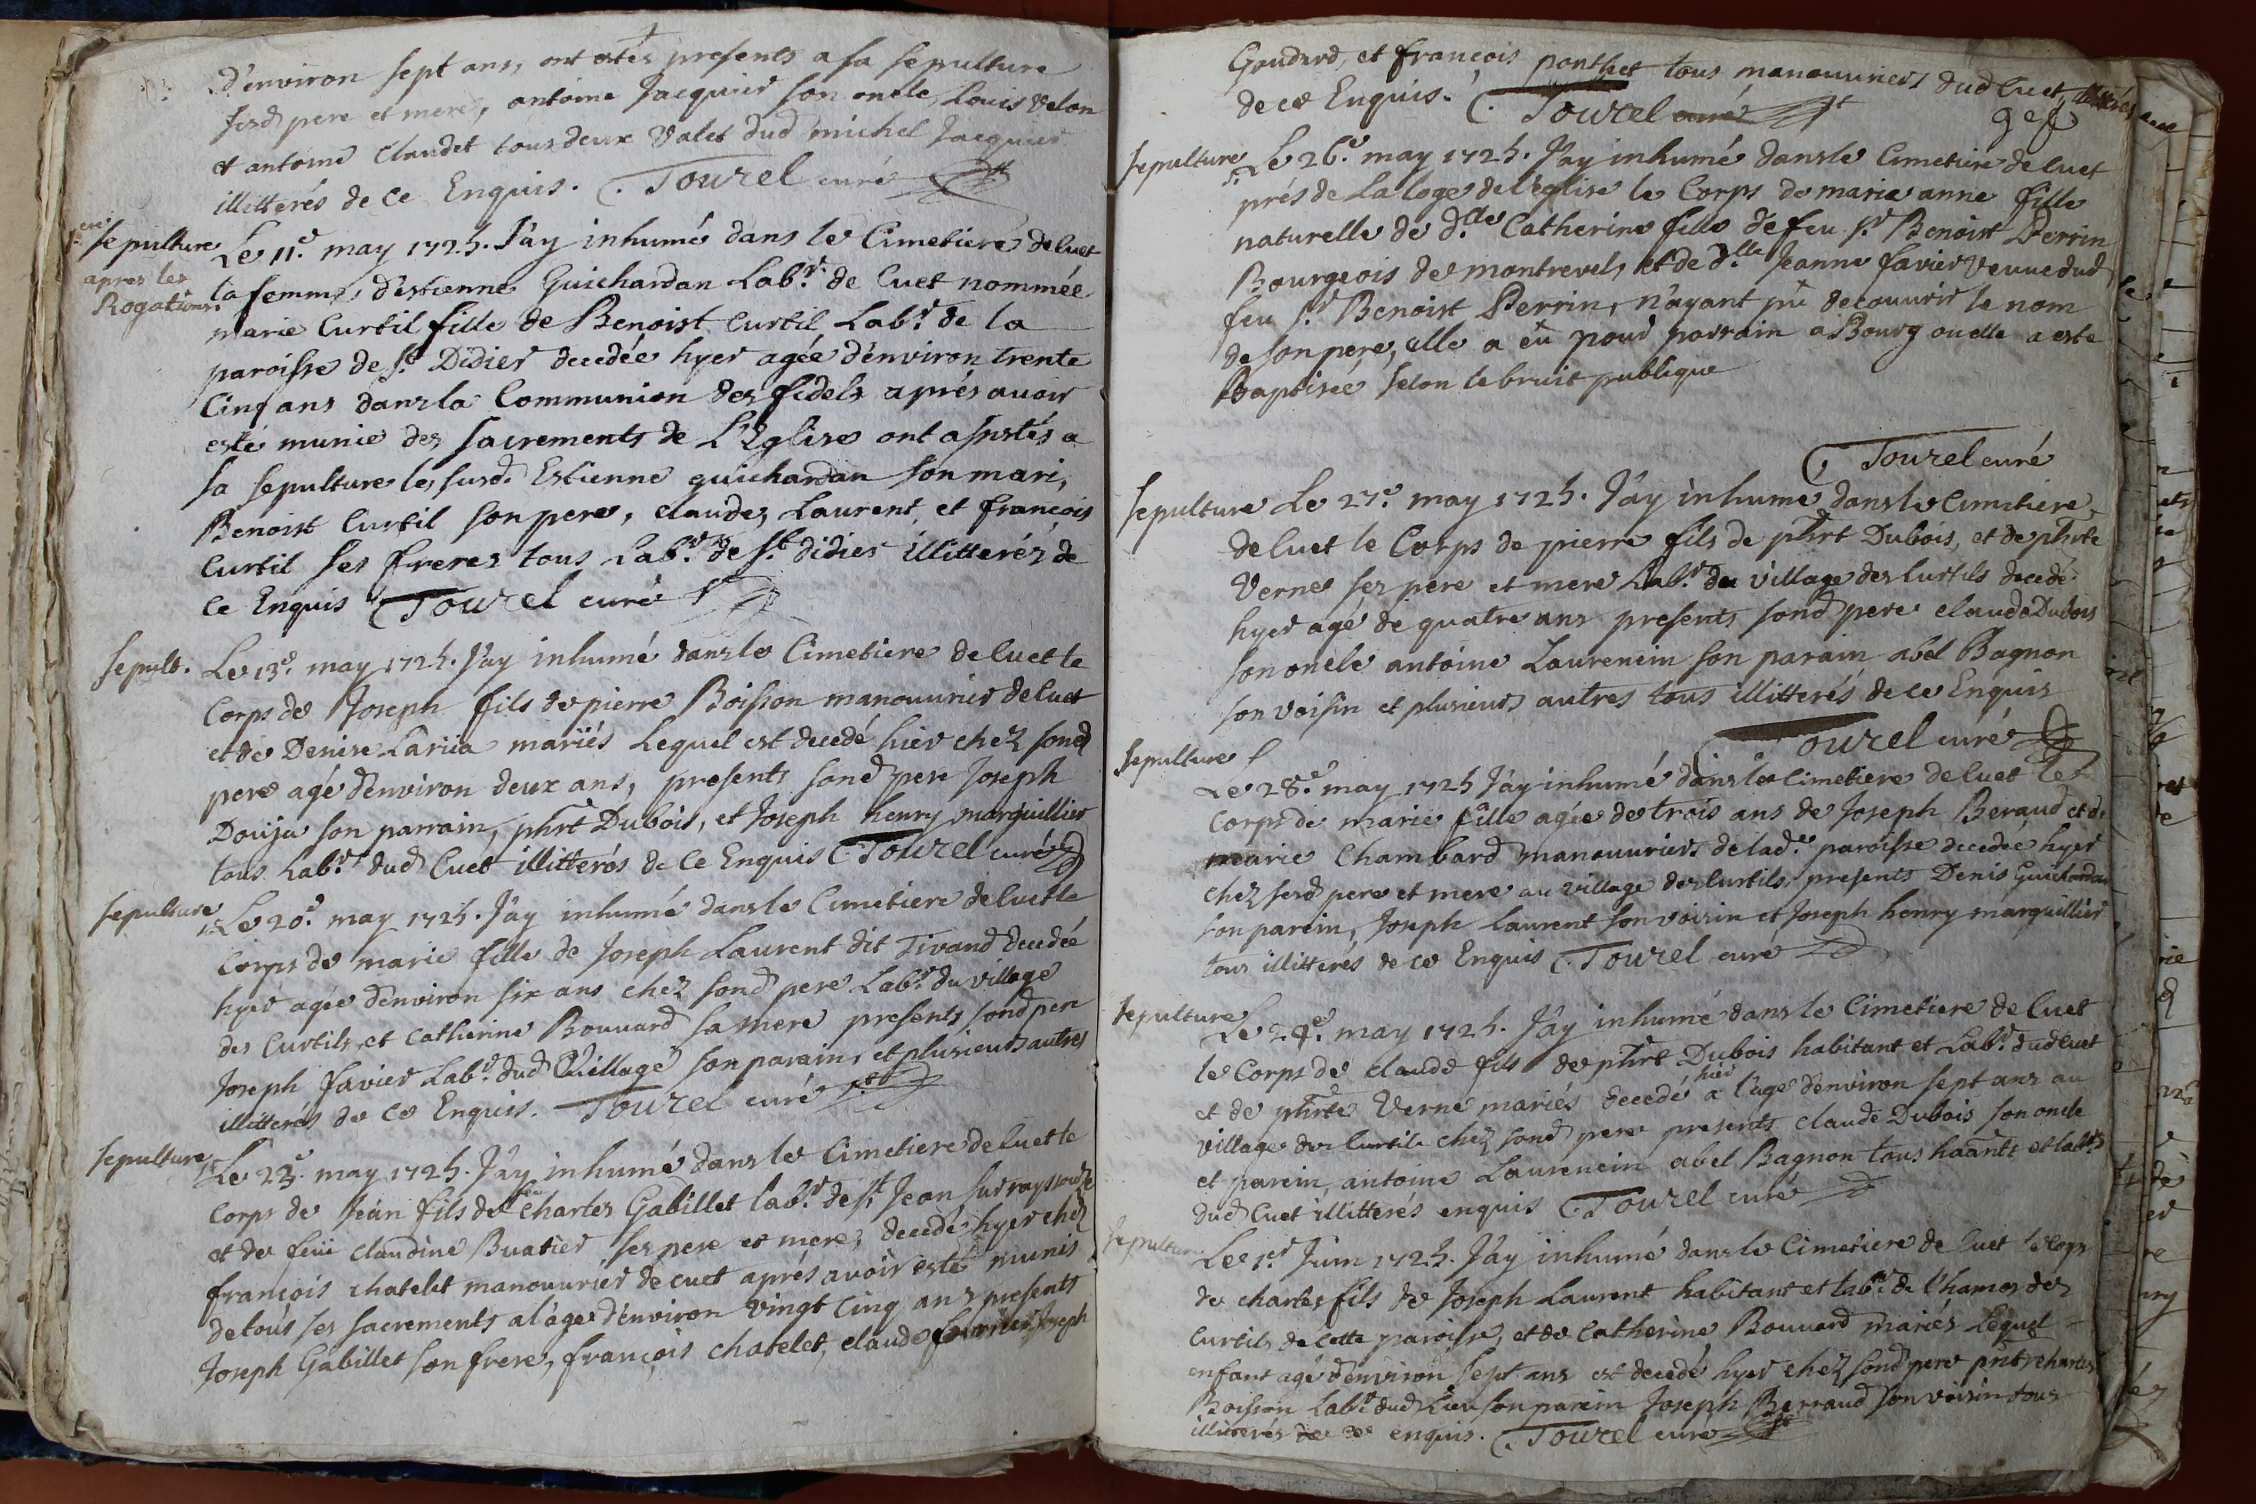 d'environ sept ans, ont estés presents a sa sepulture
sesd pere et mere, antoine Jacquier son oncle, Louis velon
et antoine Claudet tous deux valet dud michel Jacquier
illitterés de ce Enquis. C. Tourel curé
sepulture
apres les
Rogations.
Le 11.e may 1725. J'ay inhumé dans le Cimetiere de Cuet
la femme d'estienne Guichardan Lab.r de Cuet nommée
marie Curtil fille de Benoist Curtil Lab.r de la
paroisse de S.t Didier decedée hyer agée d'environ trente
Cinq ans dans la Communion des fidels aprés avoir
esté munie des sacrements de L'Eglise ont assistés a
sa sepulture les susd. Estienne guichardan son mari,
Benoist Curtil son pere, claude, Laurent et francois
Curtil ses freres tous Lab.rs de S.t didier illitterés de
Ce Enquis C Tourel curé
sepult. Le 13.e may 1725. J'ay inhumé dans le Cimetiere de Cuet le
Corps de Joseph fils de pierre Boisson manouvrier de Cuet
et de Denise Lariia mariés Lequel est decedé hier chez sond
pere agé d'environ deux ans, presents sond pere Joseph
Douja son parrain, phrt Dubois, et Joseph henry marguillier
tous Lab.rs dud Cuet illitterés de Ce Enquis C. Tourel curé
sepulture
Le 20.e may 1725. J'ay inhumé dans le Cimetiere de Cuet le
Corps de marie fille de Joseph Laurent dit Tivand decedée
hyer agée d'environ six ans chez sond pere Lab.r du village
des Curtils et Catherine Bouvard sa mere presents sond pere
Joseph favier Lab.r dud Village son parain, et plusieurs autres
illitterés de Ce Enquis. Tourel curé
sepulture
Le 23.e may 1725. J'ay inhumé dans le Cimetiere de Cuet le
Corps de Jean fils de feu Charles Gabillet lab.r de S.t Jean sur
et de feüe Claudine Buatier ses pere et mere, decedé hyer chez
françois chatelet manouvrier de cuet aprés avoir esté munis
de tous ses sacrements a l'age d'environ vingt Cinq ans presents
Joseph Gabillet son frere, françois chatelet, claude Joseph
Goudard, et françois ponthet tous manouvriers dud Cuet,
de ce Enquis. C. Tourel curé
sepulture
Le 26.e may 1725. J'ay inhumé dans le Cimetiere de Cuet
prés de La loge de l'eglise le Corps de marie anne fille
naturelle de d.lle Catherine fille de feu S.r Benoist Perrin
Bourgeois de montrevel, et de d.lle Jeanne favier veuve dud
feu S.r Benoist Perrin, n'ayant pû decouvrir le nom
de son pere, elle a eû pour parrain a Bourg ou elle a esté
Baptisée selon le bruit publique
C. Tourel curé
sepulture Le 27.e may 1725. J'ay inhumé dans le Cimetiere
de Cuet le Corps de pierre fils de phrt Dubois, et de phrte
Verne ses pere et mere Lab.rs du village des Curtils decedé
hyer agé de quatre ans presents sond pere claude Dubois
son oncle antoine Laurencin son parain abel Bagnon
son voisin et plusieurs autres tous illitterés de ce Enquis
Tourel curé
sepulture
Le 28.e may 1725 J'ay inhumé dans le Cimetiere de Cuet le
Corps de marie fille agée de trois ans de Joseph Beraud et de
marie Chambard manouvriers de lad.e paroisse decedée hyer
chez sesd pere et mere au village des Curtils, presents Denis Guichardan
son parein, Joseph Laurent son voisin et Joseph henry marguillier
tous illitterés de ce Enquis C. Tourel curé
sepulture
Le 29.e may 1725. J'ay inhumé dans le Cimetiere de Cuet
le Corps de claude fils de phrt Dubois habitant et Lab.r dud Cuet
et de phrte Verne mariés decedé hier a l'age d'environ sept ans au
village des Curtils chez sond pere presents claude Dubois son oncle
et parein, antoine Laurencin abel Bagnon tous haants et lab.rs
dud Cuet illitterés enquis C. Tourel curé
sepulture
Le 1.er Juin 1725. J'ay inhumé dans le Cimetiere de Cuet le Corps
de charles fils de Joseph Laurent habitant et lab.r de l'hameau des
Curtils de Cette paroisse, et de Catherine Bouvard mariés Lequel
enfant agé d'environ sept ans est decedé hyer chez sond pere pnt charles
Boisson Lab.r dud Lieu son parein Joseph Berraud son voisin tous
illitterés de ce enquis. C. Tourel curé